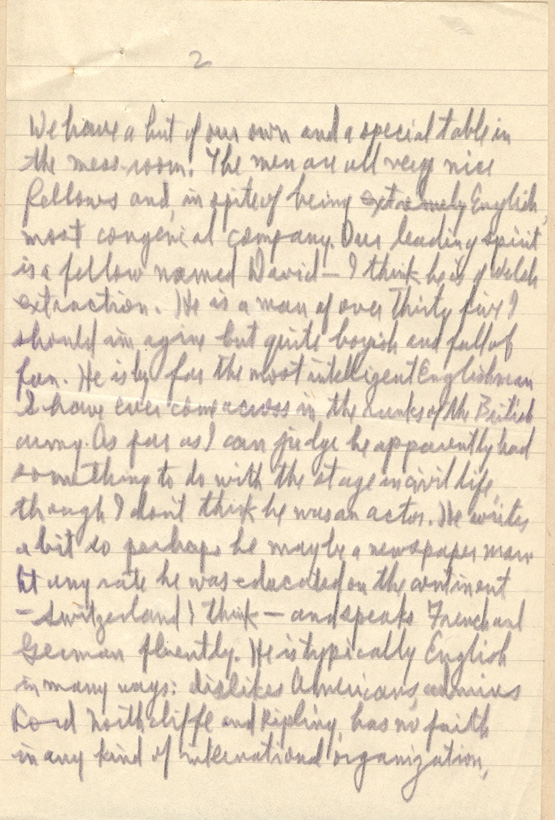 2
We have a hut of our own and a special table in
the mess-room. The men are all very nice
fellows and, in spite of being extremely English,
most congenial company. Our leading spirit
is a fellow named David — I think he is of Welsh
extraction. He is a man of over thirty five I
should imagine but quite boyish and full of
fun. He is by far the most intelligent Englishman
I have ever come across in the ranks of the British
army. As far as I can judge he apparently had
something to do with the stage in civil life,
though I don't think he was an actor. He writes
a bit so perhaps he may be a newspaper man
At any rate he was educated on the continent
— Switzerland I think — and speaks French and
German fluently. He is typically English
in many ways: dislikes Americans, admires
Lord Northcliffe and Kipling, has no faith
in any kind of international organization,